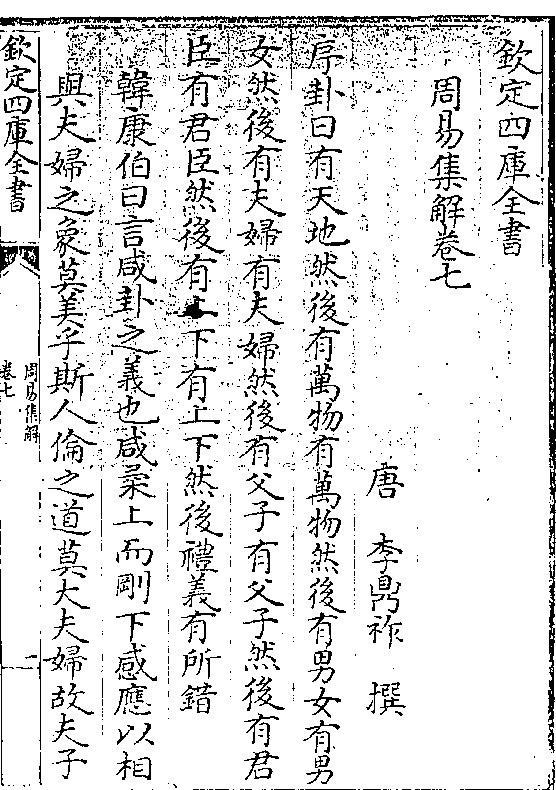 欽定四庫全書
周易集解卷七
唐 李鼎祚 撰
序卦曰有天地然後有萬物有萬物然後有男女有男
女然後有夫婦有夫婦然後有父子有父子然後有君
臣有君臣然後有上下有上下然後禮義有所錯
韓康伯曰言咸卦之義也咸柔上而剛下感應以相
與夫婦之象莫美乎斯人倫之道莫大夫婦故夫子
欽定四庫全書
周易集解
卷七
一